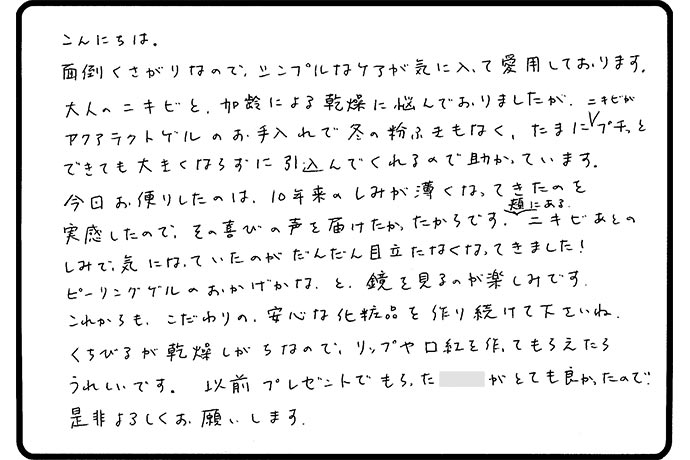 こんにちは。
面倒くさがりなので、シンプルなケアが気に入って愛用しております。
大人のニキビと、加齢による乾燥に悩んでおりましたが、ニキビが
アクアラクトゲルのお手入れで冬の粉ふきもなく、たまにプチっと
できても大きくならずに引込んでくれるので助かっています。
今日お便りしたのは、10年来のしみが薄くなってきたのを
実感したので、その喜びの声を届けたかったからです。頬にある ニキビあとの
しみで、気になっていたのがだんだん目立たなくなってきました!
ピーリングゲルのおかげかな、と、鏡を見るのが楽しみです。
これからも、こだわりの、安心な化粧品を作り続けて下さいね。
くちびるが乾燥しがちなので、リップや口紅を作ってもらえたら
うれしいです。 以前プレゼントでもらった がとても良かったので
是非よろしくお願いします。